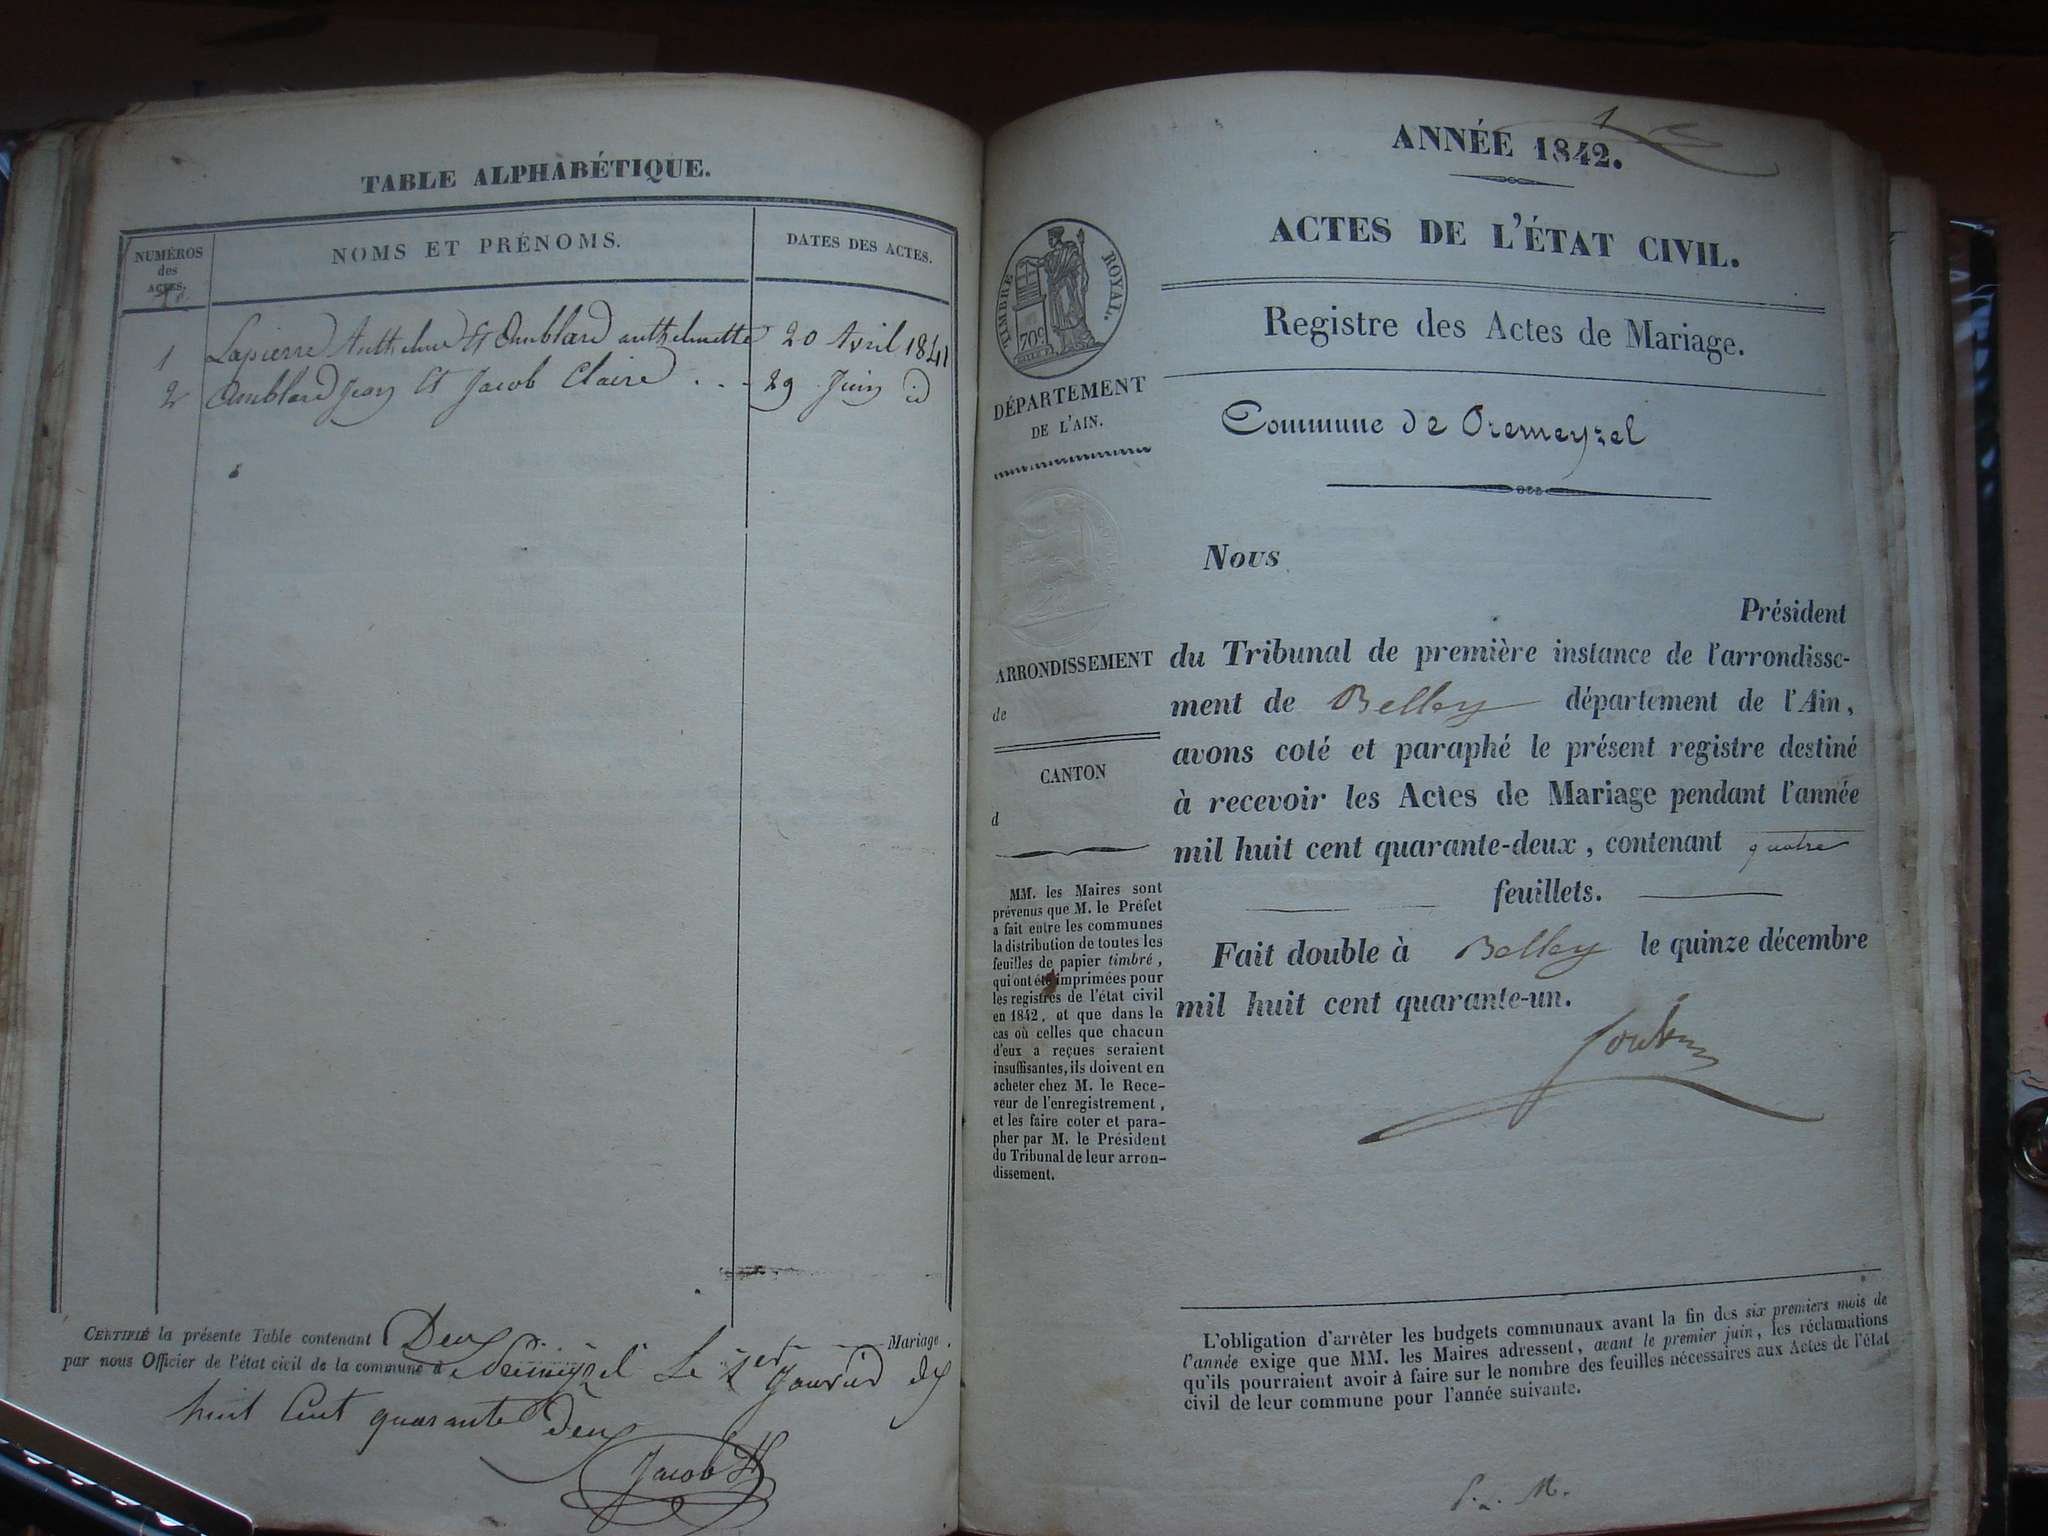 TABLE ALPHABÉTIQUE.
NUMÉROS des ACTES.
NOMS ET PRÉNOMS.
DATES DES ACTES.
1 Lapierre Anthelme Et Amblard anthelmette 20 Avril 1841
2 Amblard Jean Et Jacob Claire . . - 29 Juin id
CERTIFIÉ la présente Table contenant Deux Mariage.
par nous Officier de l'état civil de la commune d Le 1er Janvier
huit Cent quarante Deux
Jacob
1
ANNÉE 1842.
ACTES DE L'ÉTAT CIVIL.
Registre des Actes de Mariage.
Commune de Premeyzel
TIMBRE ROYAL.
70c
DÉPARTEMENT
DE L'AIN.
ARRONDISSEMENT
de
CANTON
d
MM. les Maires sont
prévenus que M. le Préfet
a fait entre les communes
la distribution de toutes les
feuilles de papier timbré,
qui ont été imprimées pour
les registres de l'état civil
en 1842, et que dans le
cas où celles que chacun
d'eux a reçues seraient
insuffisantes, ils doivent en
acheter chez M. le Rece-
veur de l'enregistrement,
et les faire coter et para-
pher par M. le Président
du Tribunal de leur arron-
dissement.
Nous
Président
du Tribunal de première instance de l'arrondisse-
ment de Belley département de l'Ain,
avons coté et paraphé le présent registre destiné
à recevoir les Actes de Mariage pendant l'année
mil huit cent quarante-deux, contenant quatre
feuillets.
Fait double à Belley le quinze décembre
mil huit cent quarante-un.
L'obligation d'arrêter les budgets communaux avant la fin des six premiers mois de
l'année exige que MM. les Maires adressent, avant le premier juin, les réclamations
qu'ils pourraient avoir à faire sur le nombre des feuilles nécessaires aux Actes de l'état
civil de leur commune pour l'année suivante.
P.. M.